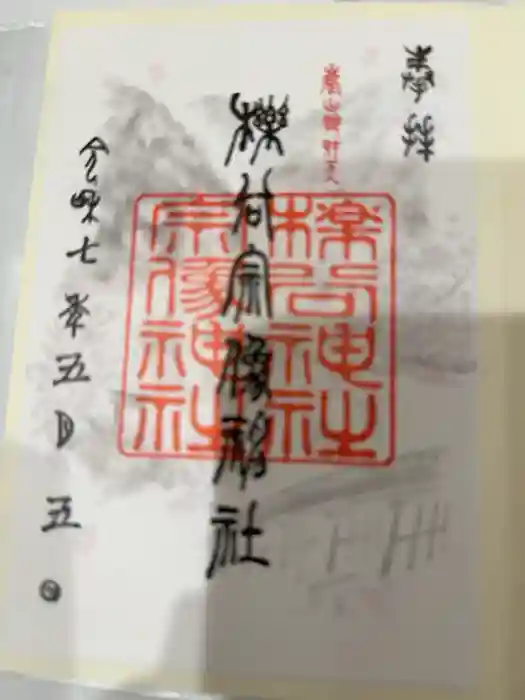 奉拝
嵐山弁財天
櫟谷宗像神社
櫟谷神社
宗像神社
令和七年五月五日